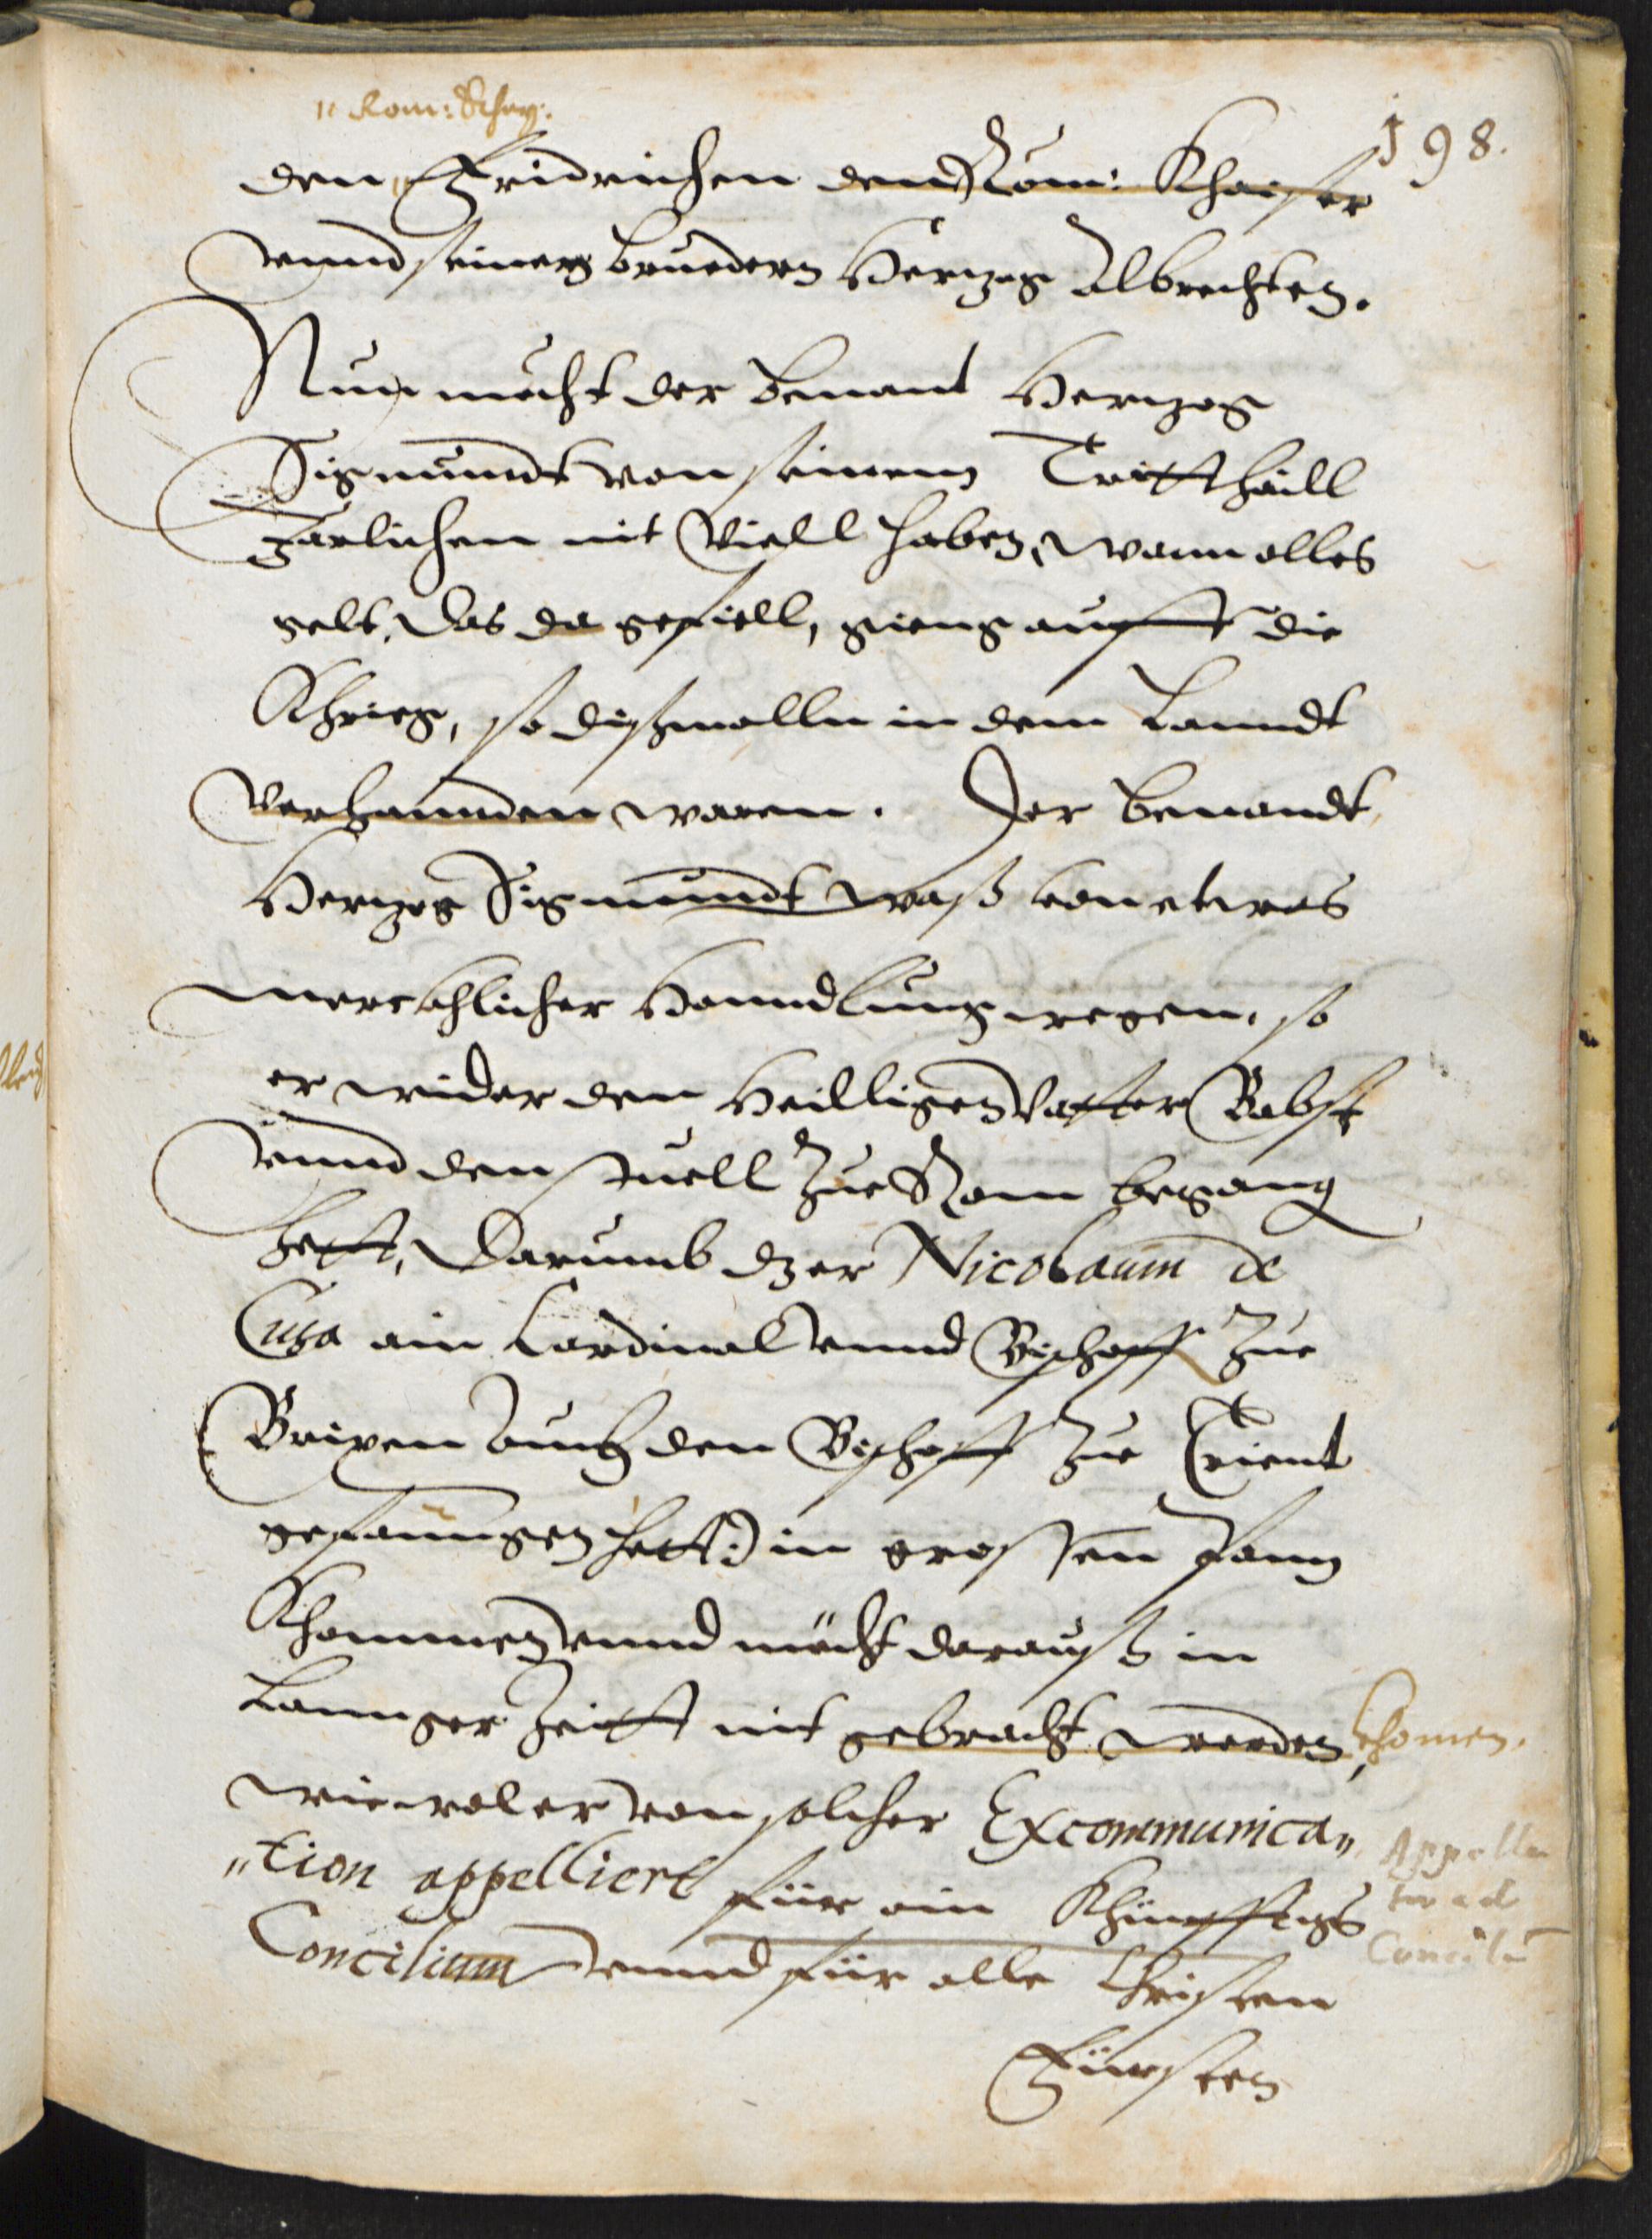 198.
Rom: Khay:
den Fridrichen den Rom: Khaiser
vnnd seinem bruedern Herzog Albrechten.
Nun mocht der benant Herzog
Sigmundt von seinem Trittthaill
Järlichen nit Viell haben, wann alles
gelt, das da gefiell, gieng aufft die
Khrieg, so dißmalln in dem Lanndt
Verhannden waren. Der benandt
Herzog Sigmundt waß von etwas
merckhlicher Hanndlung wegen, so
er wider den Heilligen Vatter Babst
vnnd den stuell Zue Rom begang
hett, Darumb dz er Nicolaum de
Cusa ain Cardinal vnnd Bischoff Zue
Brixen auch den Bischoff Zue Trient
gefanngen hett:) in grossen Pann
Khommen, vnnd mocht darauß in
Lannger Zeitt nit gebracht werden, khomen.
wiewol er von solcher Excommunica„
„tion appelliert für ain Khünfftigs
Concilium vnnd für alle Christen
Fürsten
Appella
tur ad
Conciliū